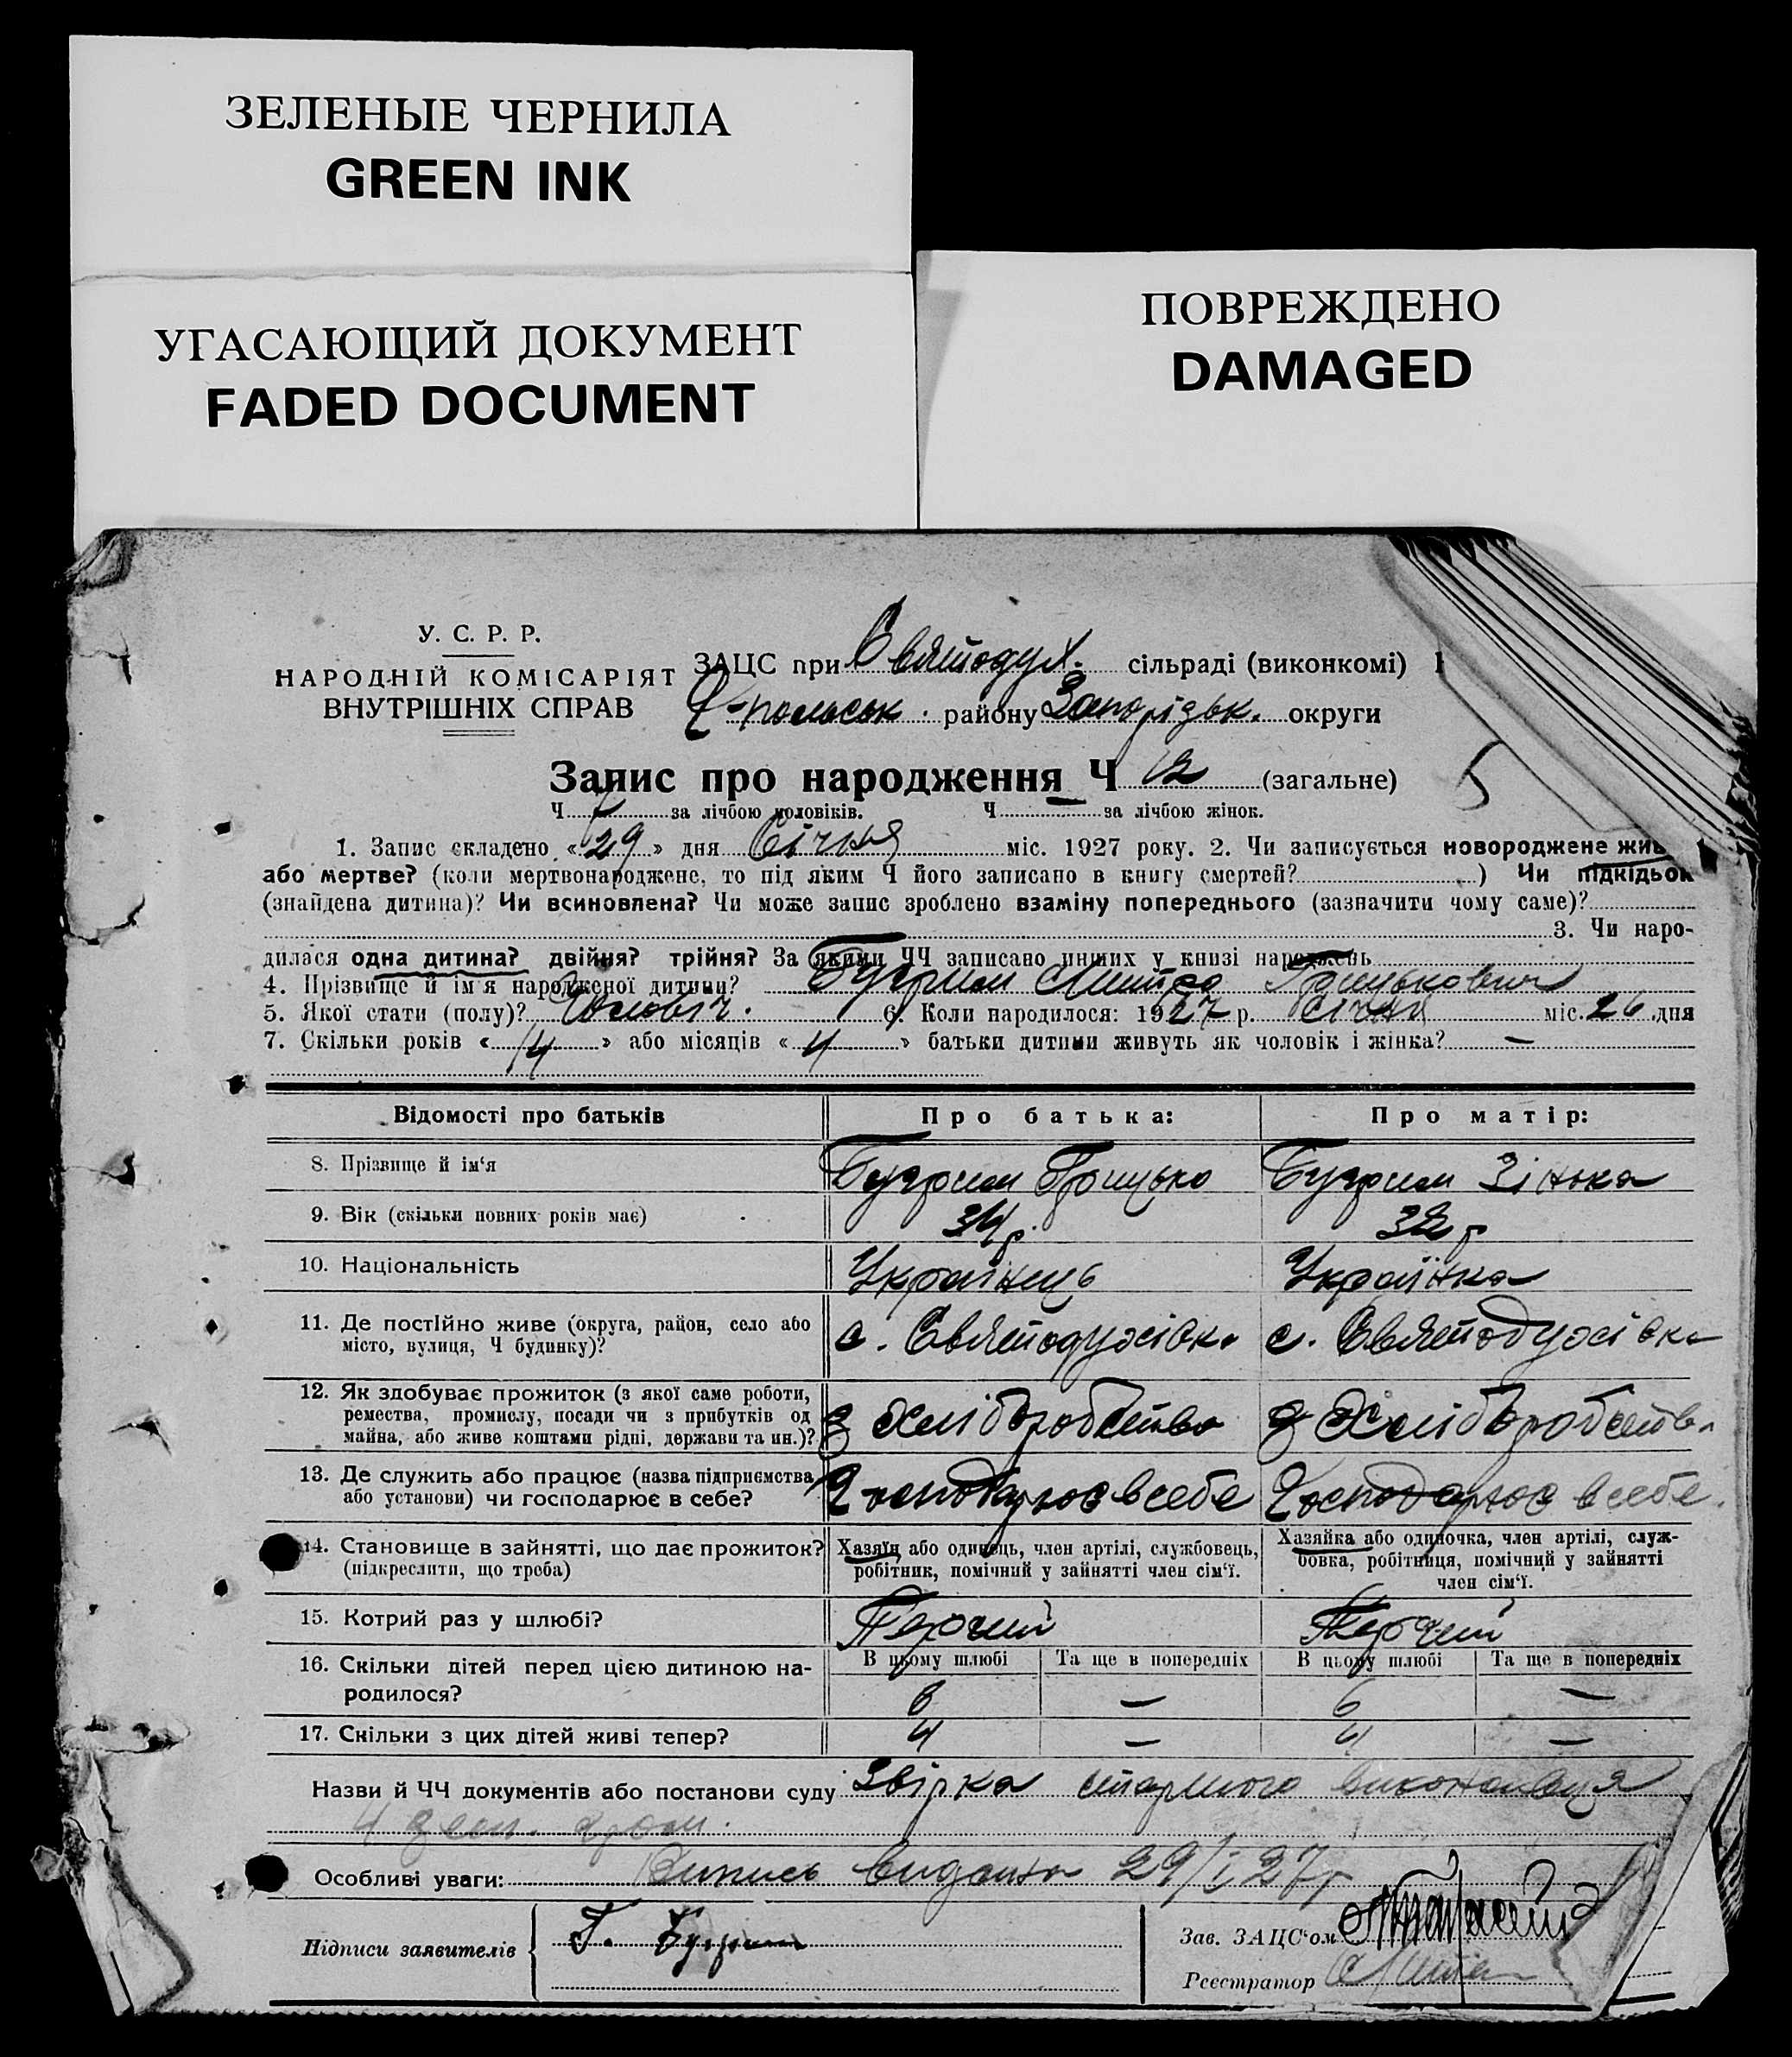 ЗЕЛЕНЫЕ ЧЕРНИЛА
GREEN INK
УГАСАЮЩИЙ ДОКУМЕНТ
FADED DOCUMENT
ПОВРЕЖДЕНО
DAMAGED
У. С. Р. Р.
НАРОДНІЙ КОМІСАРІЯТ
ВНУТРІШНІХ СПРАВ
ЗАЦС при Святодух. сільраді (виконкомі)
польськ. району Запорізьк. округи
Запис про народження Ч 12 (загальне)
5
Ч 7 за лічбою чоловіків. Ч за лічбою жінок.
1. Запис складено «29» дня Січня міс. 1927 року. 2. Чи записується новороджене жив
або мертве? (коли мертвонароджене, то під яким Ч його записано в книгу смертей? ) Чи підкідьок
(знайдена дитина)? Чи всиновлена? Чи може запис зроблено взаміну попереднього (зазначити чому саме)?
3. Чи наро-
дилася одна дитина? двійня? трійня? За якими ЧЧ записано инших у книзі народжень
4. Прізвище й ім'я народженої дитини? Бугрим Митро Грицькович
5. Якої стати (полу)? Чоловіч. 6. Коли народилося: 1927 р. Січня міс. 26 дня
7. Скільки років «14» або місяців «4» батьки дитини живуть як чоловік і жінка? —
Відомості про батьків Про батька: Про матір:
8. Прізвище й ім'я Бугрим Грицько Бугрим Зінька
9. Вік (скільки повних років має) 34 р. 32 р
10. Національність Українець Українка
11. Де постійно живе (округа, район, село або
місто, вулиця, Ч будинку)? с. Святодухівка с. Святодухівка
12. Як здобуває прожиток (з якої саме роботи,
ремества, промислу, посади чи з прибутків од
майна, або живе коштами рідні, держави та ин.)? з хліборобства з хліборобства
13. Де служить або працює (назва підприємства
або установи) чи господарює в себе? Господарює в себе Господарює в себе.
14. Становище в зайнятті, що дає прожиток?
(підкреслити, що треба)
Хазяїн або одинець, член артілі, службовець,
робітник, помічний у зайнятті член сім'ї.
Хазяйка або одиночка, член артілі, служ-
бовка, робітниця, помічний у зайнятті
член сім'ї.
15. Котрий раз у шлюбі? Перший Перший
16. Скільки дітей перед цією дитиною на-
родилося?
В цьому шлюбі Та ще в попередніх В цьому шлюбі Та ще в попередніх
6 — 6 —
17. Скільки з цих дітей живі тепер? 4 — 4 —
Назви й ЧЧ документів або постанови суду Звірка старшого виконавця
4 зем. гром.
Особливі уваги: Випись видана 29/I 27 р
Підписи заявителів Г. Бугрим
Зав. ЗАЦС'ом
Реєстратор